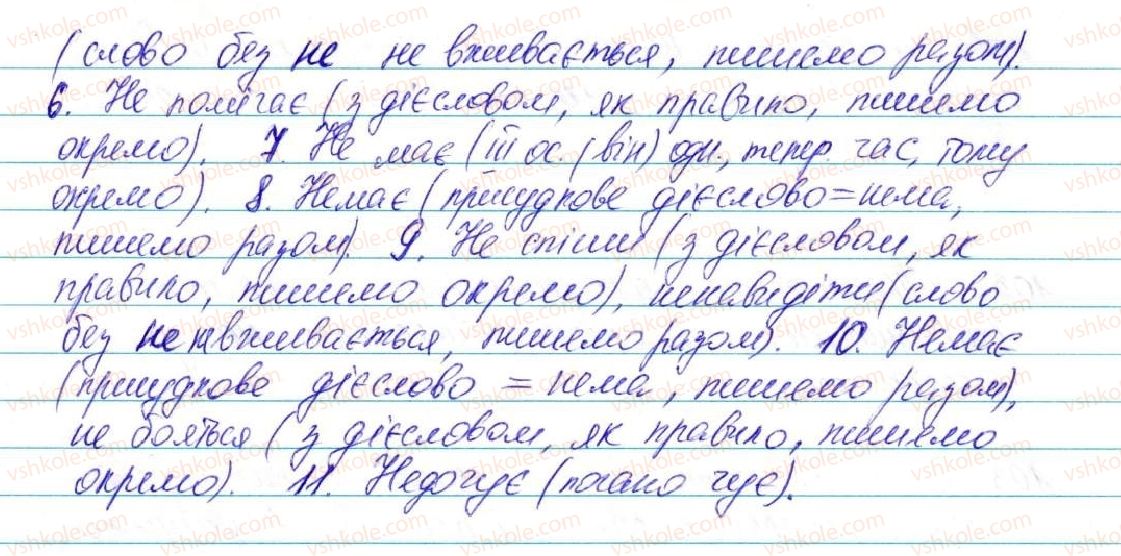 (слово без не не вживається, пишемо разом).
6. Не помічає (з дієсловом, як правило, пишемо
окремо). 7. Не має (III ос. (він) одн., тепер. час, тому
окремо). 8. Немає (присудкове дієслово = нема,
пишемо разом). 9. Не спіши (з дієсловом, як
правило, пишемо окремо), ненавидіти (слово
без не не вживається, пишемо разом). 10. Немає
(присудкове дієслово = нема, пишемо разом),
не бояться (з дієсловом, як правило, пишемо
окремо). 11. Недочує (погано чує).